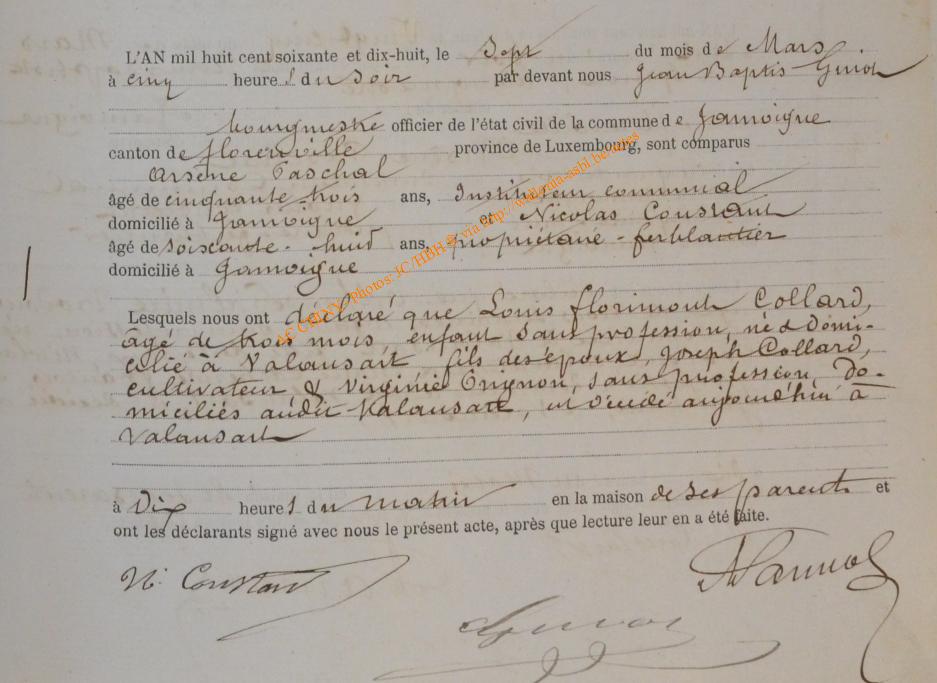 L'AN mil huit cent soixante et dix-huit, le Sept du mois de Mars.
à cinq heures du Soir par devant nous Jean Baptis
bourgmestre officier de l'état civil de la commune de Jamoigne
canton de florenville province de Luxembourg, sont comparus
Arsène Paschal
âgé de cinquante-trois ans, Instituteur communal
domicilié à Jamoigne et Nicolas Constant
âgé de soixante-huit ans, propriétaire-ferblantier
domicilié à Jamoigne
Lesquels nous ont déclaré que Louis florimont Collard,
âgé de trois mois, enfant sans profession, né & domi-
cilié à Valansart, fils des époux, Joseph Collard,
cultivateur & Virginie, sans profession, do-
miciliés audit Valansart, est décédé aujourd'hui à
Valansart
à Dix heures du matin en la maison de ses parents et
ont les déclarants signé avec nous le présent acte, après que lecture leur en a été faite.
N. Constant
AC CHINY - Photos: JC/HBH © via http://wallonia-asbl.be/actes